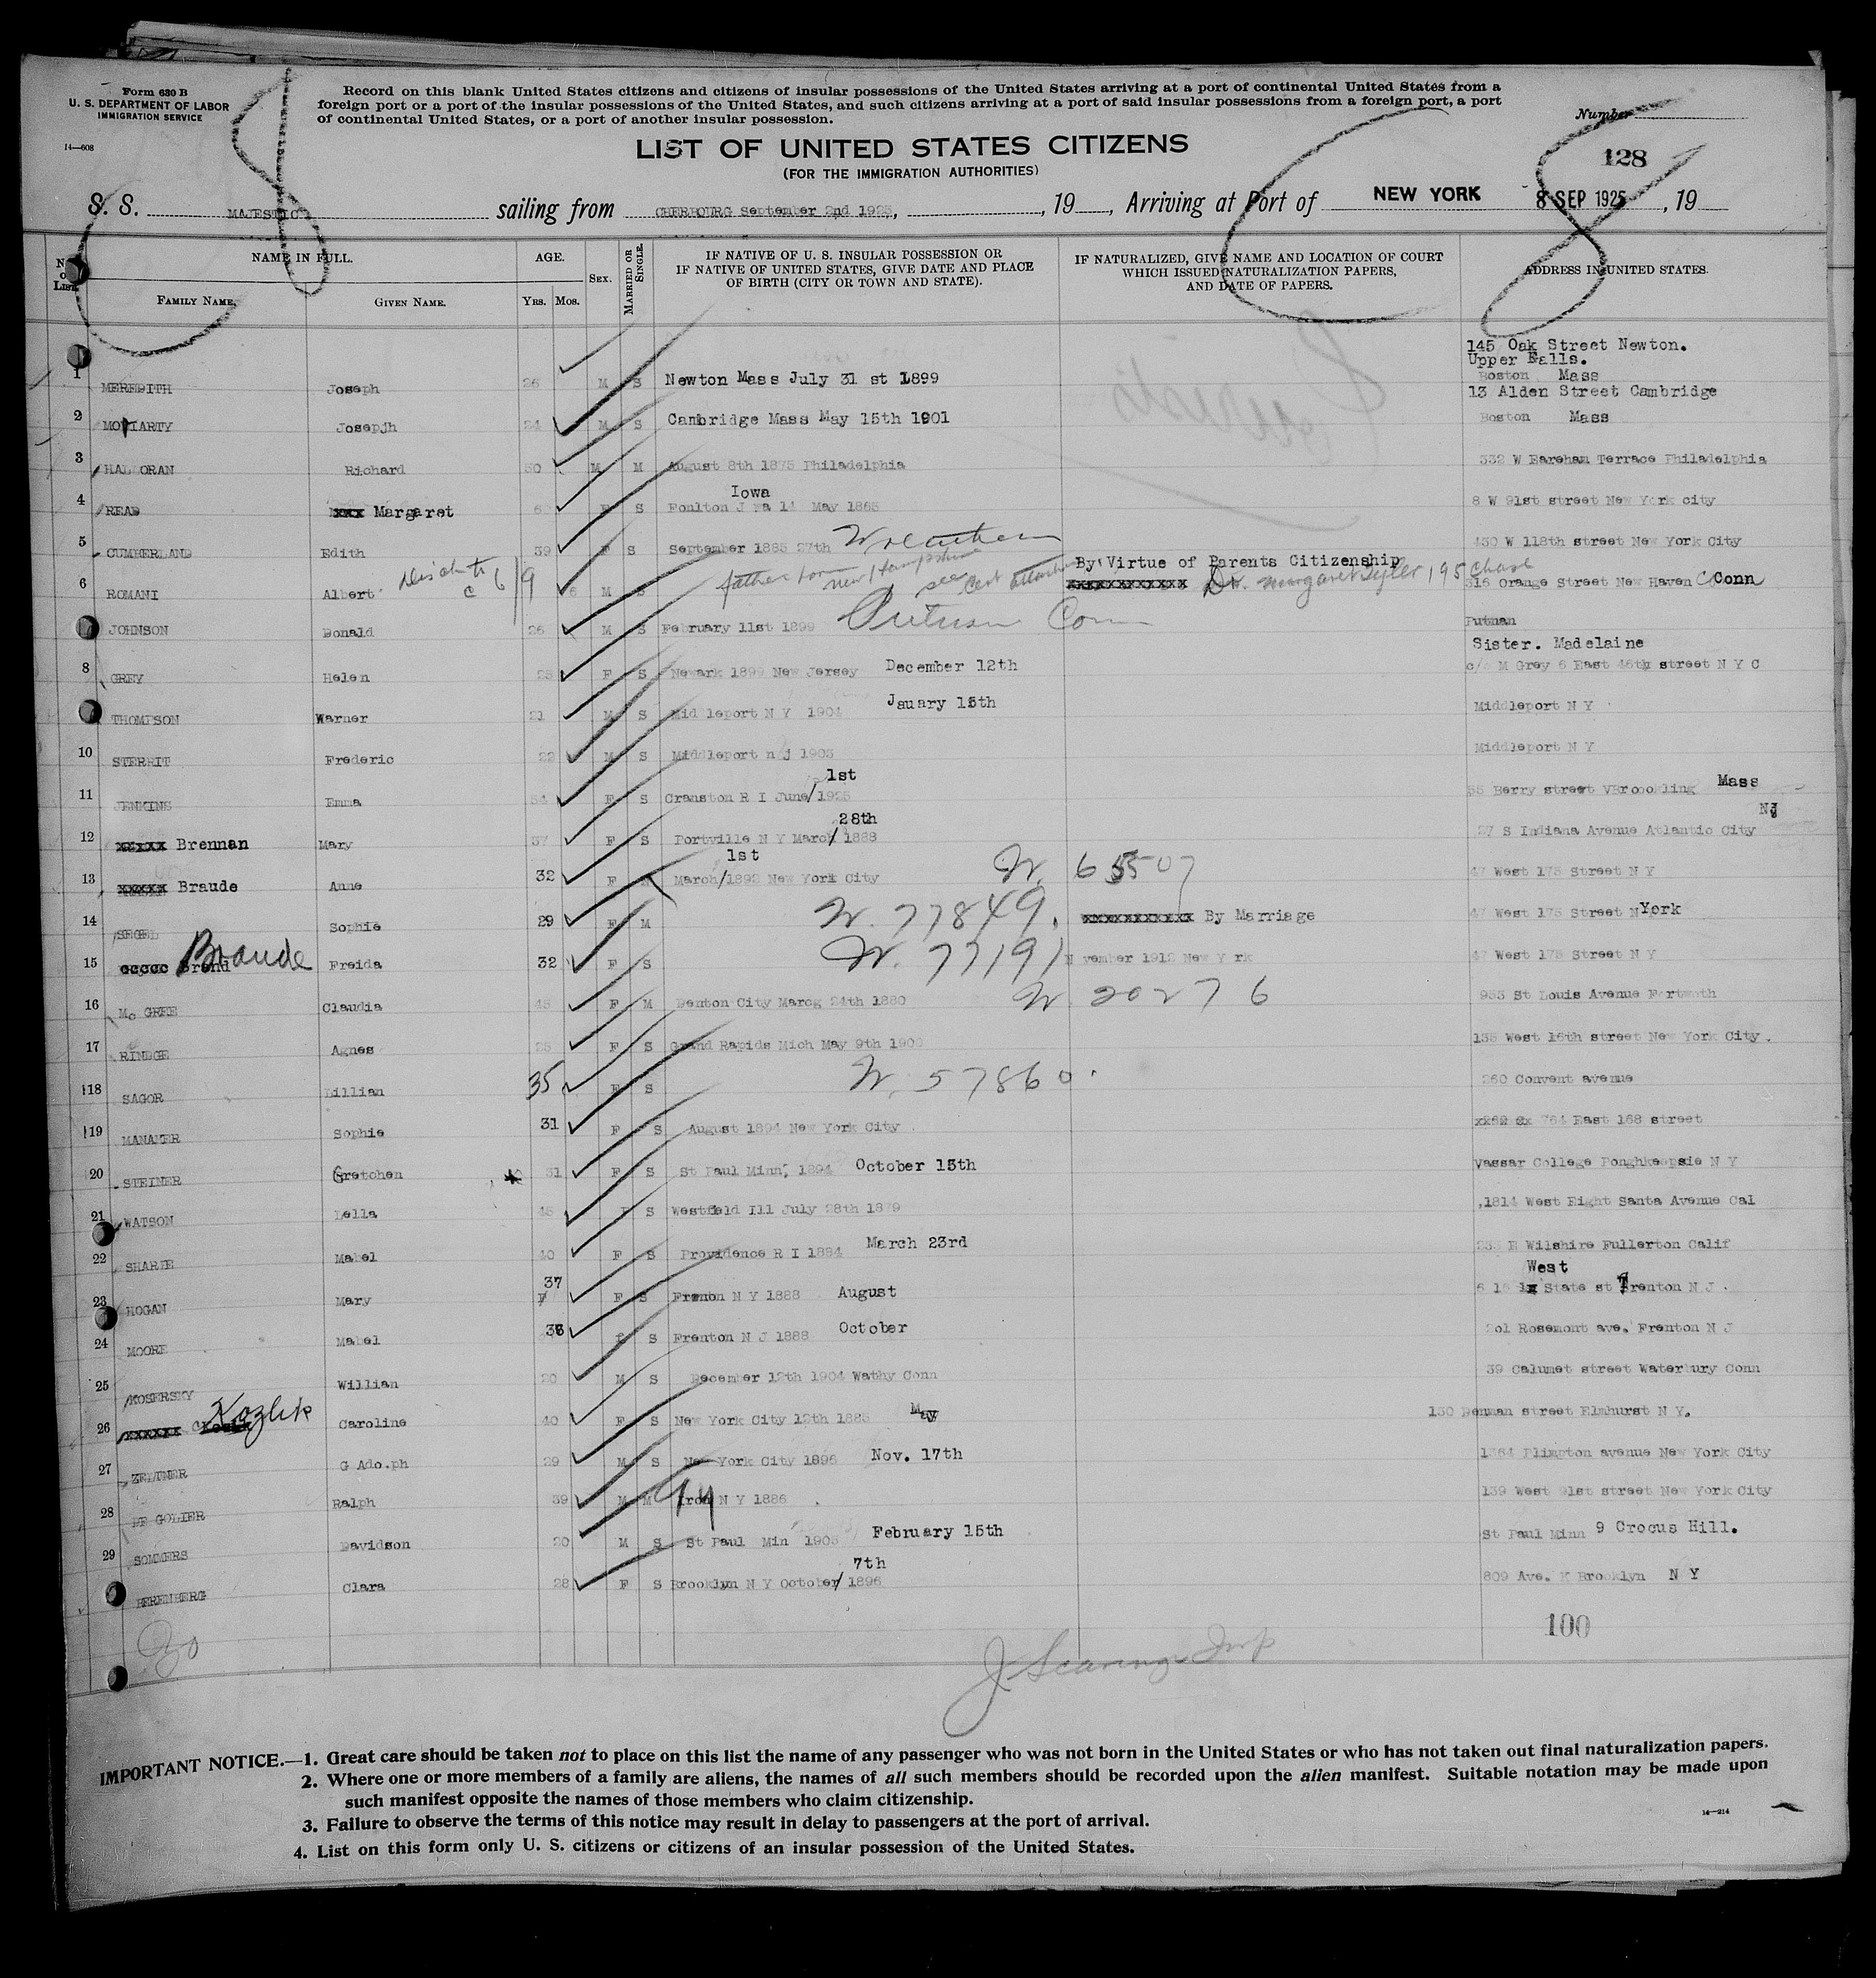 Form 630 B
U. S. DEPARTMENT OF LABOR
IMMIGRATION SERVICE
14—608
Record on this blank United States citizens and citizens of insular possessions of the United States arriving at a port of continental United States from a
foreign port or a port of the insular possessions of the United States, and such citizens arriving at a port of said insular possessions from a foreign port, a port
of continental United States, or a port of another insular possession.
Number
128
LIST OF UNITED STATES CITIZENS
(FOR THE IMMIGRATION AUTHORITIES)
S. S. MAJESTIC sailing from CHERBOURG September 2nd 1925, , 19 , Arriving at Port of NEW YORK 8 SEP 1925 , 19
No. on List. NAME IN FULL. FAMILY NAME. GIVEN NAME. AGE. YRS. MOS. SEX. MARRIED OR SINGLE. IF NATIVE OF U. S. INSULAR POSSESSION OR IF NATIVE OF UNITED STATES, GIVE DATE AND PLACE OF BIRTH (CITY OR TOWN AND STATE). IF NATURALIZED, GIVE NAME AND LOCATION OF COURT WHICH ISSUED NATURALIZATION PAPERS, AND DATE OF PAPERS. ADDRESS IN UNITED STATES.
145 Oak Street Newton.
Upper Falls.
1 MEREDITH Joseph 26 M S Newton Mass July 31 st 1899 Boston Mass
13 Alden Street Cambridge
2 MORIARTY Josepjh 24 M S Cambridge Mass May 15th 1901 Boston Mass
3 HALLORAN Richard 50 M M August 8th 1875 Philadelphia 332 W Eareham Terrace Philadelphia
Iowa
4 READ xxx Margaret F S 14 May 1865 8 W 91st street New York city
5 CUMBERLAND Edith 39 F S September 1885 27th 430 W 118th street New York City
By Virtue of Parents Citizenship
6 ROMANI Albert 6 M S father born New Hampshire see cert attached xxxxxxxxxxxx Dr. Margaret Tyler 195 Chapel 316 Orange Street New Haven Conn
JOHNSON Donald 26 M S February 11st 1899 Putnam Conn Putnan
Sister. Madelaine
8 GREY Helen 25 F S Newark 1899 New Jersey December 12th c/o M Grey 6 East 46th street N Y C
THOMPSON Warner 21 M S Middleport N Y 1904 Jauary 15th Middleport N Y
10 STERRIT Frederic 22 M S Middleport n j 1903 Middleport N Y
1st
11 JENKINS Emma 54 F S Cranston R I June/1925 55 Berry street VBroookling Mass
28th NJ
12 xxxxxx Brennan Mary 37 F S Portville N Y March/ 1888 27 S Indiana Avenue Atlantic City
1st
13 xxxxxx Braude Anne 32 F March/1892 New York City N. 65507 47 West 175 Street N Y
14 SEGEL Sophie 29 F M N. 77849. xxxxxxxxxxxx By Marriage 47 West 175 Street N York
15 Brend Braude Freida 32 F S N. 77191 November 1912 New York 47 West 175 Street N Y
16 Mc GREE Claudia 45 F M Denton City Marcg 24th 1880 N 20276 953 St Louis Avenue Fortworth
17 RINDGE Agnes 25 F S Grand Rapids Mich May 9th 1900 135 West 16th street New York City.
18 SAGOR Lillian 35 F S N. 57860. 260 Convent avenue
19 MANAMER Sophie 31 F S August 1894 New York City 764 East 168 street
20 STEINER Gretchen 31 F S St Paul Minn, 1894 October 15th Vassar College Poughkeepsie N Y
21 WATSON Lella 45 F S Westfield Ill July 28th 1879 1814 West Eight Santa Avenue Cal
22 SHARPE Mabel 40 F S Providence R I 1884 March 23rd 233 E Wilshire Fullerton Calif
West
23 HOGAN Mary 37 F S N Y 1888 August 616 State st Trenton N J.
24 MOORE Mabel 36 F S Frenton N J 1888 October 201 Rosemont ave. Frenton N J
25 KOSERSKY Willian 20 M S December 12th 1904 Wathy Conn 39 Calumet street Waterbury Conn
26 xxxxxx Kozlik Caroline 40 F S New York City 12th 1885 May 130 Denman street Elmhurst N Y.
27 ZELTNER G Adolph 29 M S New York City 1896 Nov. 17th 1364 Plimgton avenue New York City
28 DE GOLIER Ralph 39 M M Troy N Y 1886 139 West 91st street New York City
29 SOMMERS Davidson 20 M S St Paul Min 1905 February 15th St Paul Minn 9 Crocus Hill.
7th
BERENBERG Clara 28 F S Brooklyn N Y October/ 1896 809 Ave. K Brooklyn N Y
30
100
J Scaringe Insp
IMPORTANT NOTICE.—1. Great care should be taken not to place on this list the name of any passenger who was not born in the United States or who has not taken out final naturalization papers.
2. Where one or more members of a family are aliens, the names of all such members should be recorded upon the alien manifest. Suitable notation may be made upon
such manifest opposite the names of those members who claim citizenship.
3. Failure to observe the terms of this notice may result in delay to passengers at the port of arrival.
14—214
4. List on this form only U. S. citizens or citizens of an insular possession of the United States.